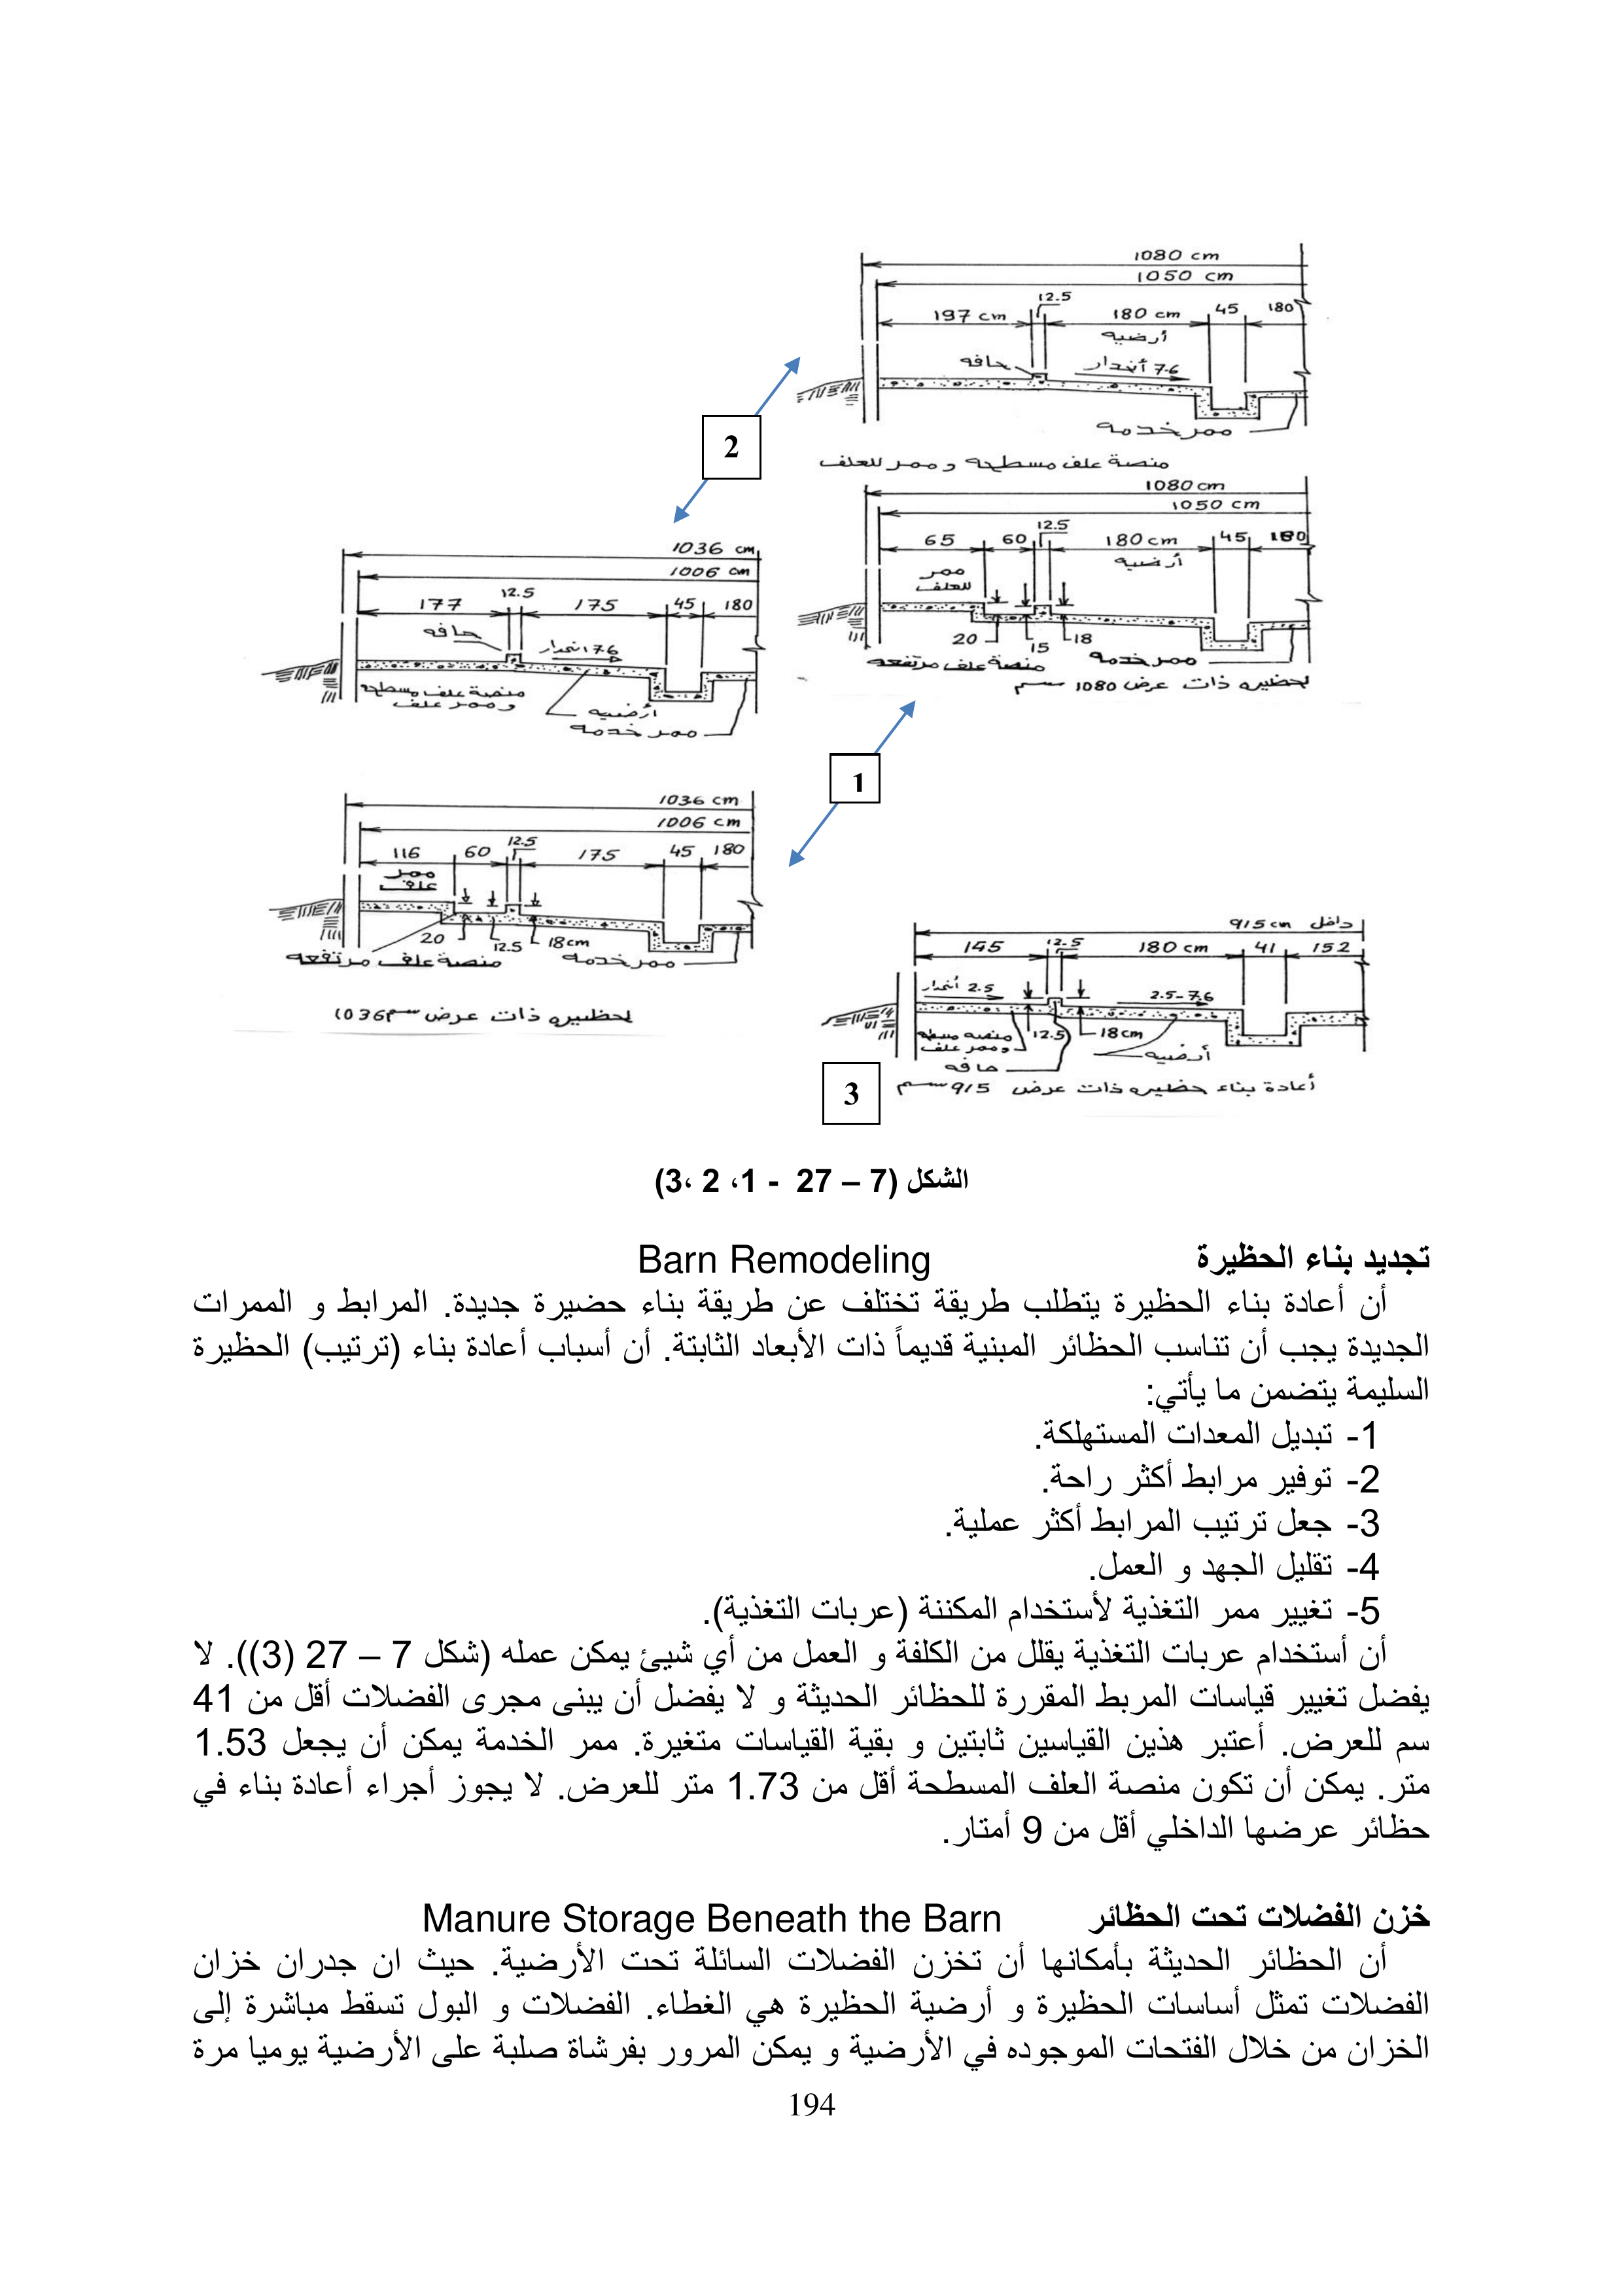 1080 cm
1050 cm
12.5
197 cm 180 cm 45 180
أرضيه
حافه أنحدار 7.6
ممر خدمه
منصة علف مسطحه و ممر للعلف
2
1080 cm
1050 cm
12.5
65 60 180 cm 45 180
ممر للعلف
أرضيه
20 15 18
منصة علف مرتفعه ممر خدمه
لحظيره ذات عرض 1080 سم
1036 cm
1006 cm
12.5
177 175 45 180
حافه انحدار 7.6
منصة علف مسطحه
وممر علف
أرضيه
ممر خدمه
1
1036 cm
1006 cm
12.5
116 60 175 45 180
ممر
علف
20 12.5 18 cm
منصة علف مرتفعه ممر خدمه
لحظيره ذات عرض 1036 سم
داخل 915 cm
145 12.5 180 cm 41 152
أنحدار 2.5 2.5-7.6
منصه مسطحه
وممر علف
12.5 18 cm
أرضيه
حافه
3
أعادة بناء حظيره ذات عرض 915 سم
الشكل (7 – 27 - 1، 2 ،3)
تجديد بناء الحظيرة Barn Remodeling
أن أعادة بناء الحظيرة يتطلب طريقة تختلف عن طريقة بناء حضيرة جديدة. المرابط و الممرات
الجديدة يجب أن تناسب الحظائر المبنية قديماً ذات الأبعاد الثابتة. أن أسباب أعادة بناء (ترتيب) الحظيرة
السليمة يتضمن ما يأتي:
1- تبديل المعدات المستهلكة.
2- توفير مرابط أكثر راحة.
3- جعل ترتيب المرابط أكثر عملية.
4- تقليل الجهد و العمل.
5- تغيير ممر التغذية لأستخدام المكننة (عربات التغذية).
أن أستخدام عربات التغذية يقلل من الكلفة و العمل من أي شيئ يمكن عمله (شكل 7 – 27 (3)). لا
يفضل تغيير قياسات المربط المقررة للحظائر الحديثة و لا يفضل أن يبنى مجرى الفضلات أقل من 41
سم للعرض. أعتبر هذين القياسين ثابتين و بقية القياسات متغيرة. ممر الخدمة يمكن أن يجعل 1.53
متر. يمكن أن تكون منصة العلف المسطحة أقل من 1.73 متر للعرض. لا يجوز أجراء أعادة بناء في
حظائر عرضها الداخلي أقل من 9 أمتار.
خزن الفضلات تحت الحظائر Manure Storage Beneath the Barn
أن الحظائر الحديثة بأمكانها أن تخزن الفضلات السائلة تحت الأرضية. حيث ان جدران خزان
الفضلات تمثل أساسات الحظيرة و أرضية الحظيرة هي الغطاء. الفضلات و البول تسقط مباشرة إلى
الخزان من خلال الفتحات الموجوده في الأرضية و يمكن المرور بفرشاة صلبة على الأرضية يوميا مرة
194